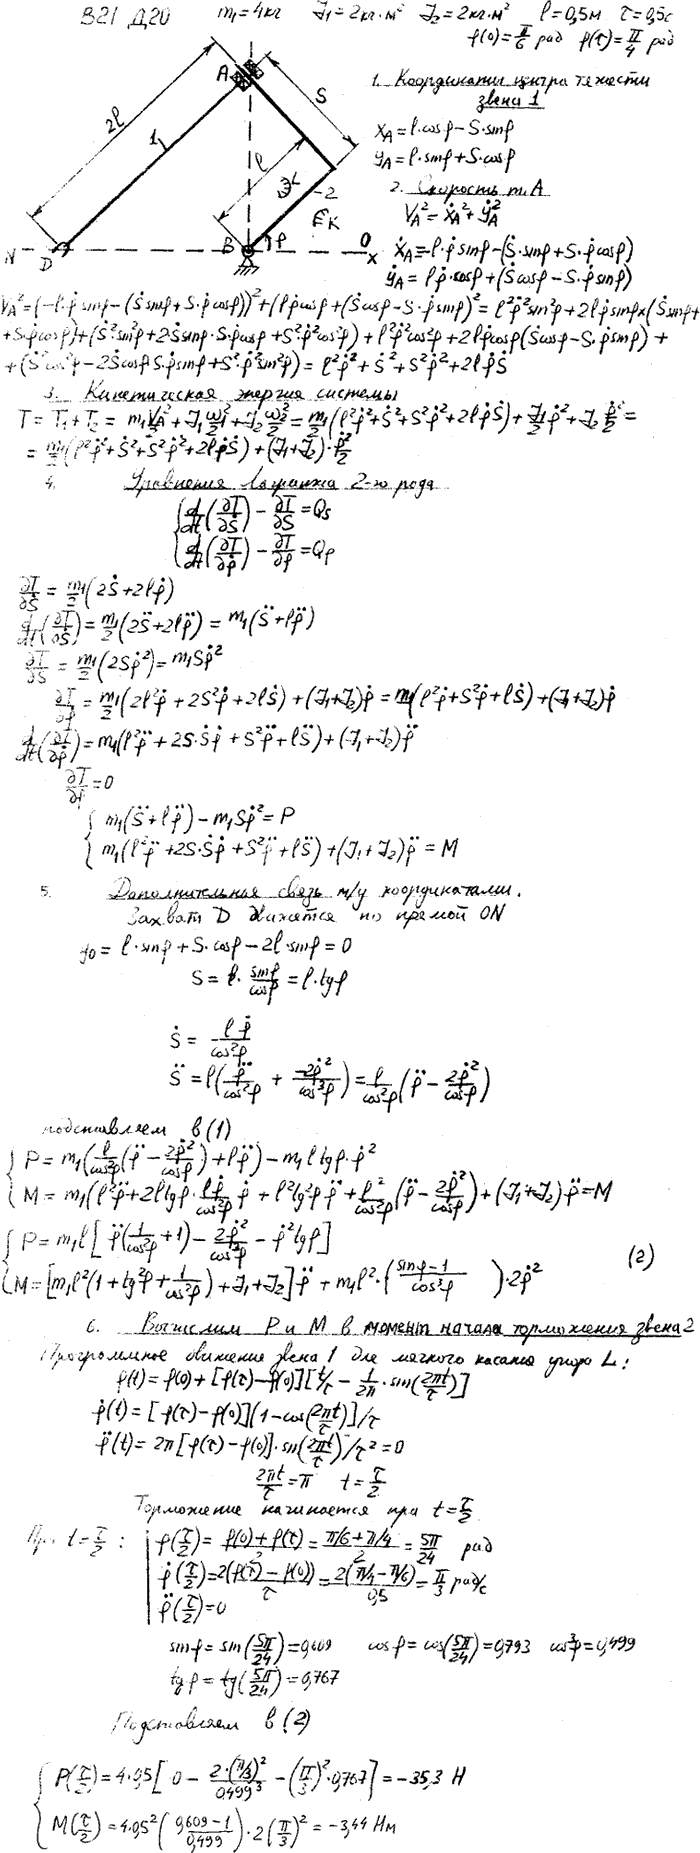 В21 Д20 m₁=4кг J₁=2кг·м² J₂=2кг·м² l=0,5м τ=0,5с
φ(0)=π/6 рад φ(τ)=π/4 рад
A
2l
1
S
l
2
K
N
D
B
φ
0
x
1. Координати центра тяжести
звена 1
x_A=l·cosφ−S·sinφ
y_A=l·sinφ+S·cosφ
2. Скорость т.A
V_A²=ẋ_A²+ẏ_A²
ẋ_A=−l·φ̇ sinφ−(Ṡ·sinφ+S·φ̇cosφ)
ẏ_A=lφ̇·cosφ+(Ṡcosφ−S·φ̇sinφ)
V_A²=(−l·φ̇sinφ−(Ṡsinφ+S·φ̇cosφ))²+(lφ̇cosφ+(Ṡcosφ−S·φ̇sinφ)²=l²φ̇²sin²φ+2lφ̇sinφ×(Ṡsinφ+
+S·φ̇cosφ)+(Ṡ²sin²φ+2Ṡsinφ·S·φ̇cosφ+S²φ̇²cos²φ)+l²φ̇²cos²φ+2lφ̇cosφ(Ṡcosφ−S·φ̇sinφ)+
+(Ṡ²cos²φ−2ṠcosφS·φ̇sinφ+S²·φ̇²sin²φ)=l²φ̇²+Ṡ²+S²φ̇²+2lφ̇Ṡ
3. Кинетическая энергия системы
T=T₁+T₂=m₁V_A²/2+J₁ω₁²/2+J₂ω₂²/2=m₁/2(l²φ̇²+Ṡ²+S²φ̇²+2lφ̇Ṡ)+J₁/2φ̇²+J₂φ̇²/2=
=m₁/2(l²φ̇²+Ṡ²+S²φ̇²+2lφ̇Ṡ)+(J₁+J₂)·φ̇²/2
4. Уравнения Лагранжа 2-го рода
d/dt(∂T/∂Ṡ)−∂T/∂S=Q_S
d/dt(∂T/∂φ̇)−∂T/∂φ=Q_φ
∂T/∂Ṡ=m₁/2(2Ṡ+2lφ̇)
d/dt(∂T/∂Ṡ)=m₁/2(2S̈+2lφ̈)=m₁(S̈+lφ̈)
∂T/∂S=m₁/2(2Sφ̇²)=m₁Sφ̇²
∂T/∂φ̇=m₁/2(2l²φ̇+2S²φ̇+2lṠ)+(J₁+J₂)φ̇=m₁(l²φ̇+S²φ̇+lṠ)+(J₁+J₂)φ̇
d/dt(∂T/∂φ̇)=m₁(l²φ̈+2S·Ṡφ̇+S²φ̈+lS̈)+(J₁+J₂)φ̈
∂T/∂φ=0
m₁(S̈+lφ̈)−m₁Sφ̇²=P
m₁(l²φ̈+2S·Ṡφ̇+S²φ̈+lS̈)+(J₁+J₂)φ̈=M
5. Дополнительная связь м/у координатами.
Захват D движется по прямой ON
y_D=l·sinφ+S·cosφ−2l·sinφ=0
S=l·sinφ/cosφ=l·tgφ
Ṡ=lφ̇/cos²φ
S̈=l(φ̈/cos²φ+−2φ̇²/cos³φ)=l/cos²φ(φ̈−2φ̇²/cosφ)
подставляем в (1)
P=m₁(l/cos²φ(φ̈−2φ̇²/cosφ)+lφ̈)−m₁l tgφ·φ̇²
M=m₁(l²φ̈+2l tgφ·lφ̇/cos²φ φ̇+l²tg²φφ̈+l²/cos²φ(φ̈−2φ̇²/cosφ)+(J₁+J₂)φ̈=M
P=m₁l[φ̈(1/cos²φ+1)−2φ̇²/cos³φ−φ̇²tgφ]
M=[m₁l²(1+tg²φ+1/cos²φ)+J₁+J₂]φ̈+m₁l²·(sinφ−1/cos³φ)·2φ̇²
(2)
6. Вычислим P и M в момент начала торможения звена 2
Программное движение звена 1 для мягкого касания упора L:
φ(t)=φ(0)+[φ(τ)−φ(0)][t/τ−1/2π·sin(2πt/τ)]
φ̇(t)=[φ(τ)−φ(0)](1−cos(2πt/τ)]/τ
φ̈(t)=2π[φ(τ)−φ(0)]·sin(2πt/τ)/τ²=0
2πt/τ=π t=τ/2
Торможение начинается при t=τ/2
При t=τ/2:
φ(τ/2)=φ(0)+φ(τ)/2=π/6+π/4/2=5π/24 рад
φ̇(τ/2)=2(φ(τ)−φ(0))/τ=2(π/4−π/6)/0,5=π/3 рад/с
φ̈(τ/2)=0
sinφ=sin(5π/24)=0,609 cosφ=cos(5π/24)=0,793 cos³φ=0,499
tgφ=tg(5π/24)=0,767
Подставляем в (2)
P(τ/2)=4·0,5[0−2·(π/3)²/0,499³−(π/3)²·0,767]=−35,3 Н
M(τ/2)=4·0,5²(0,609−1/0,499)·2(π/3)²=−3,44 Нм